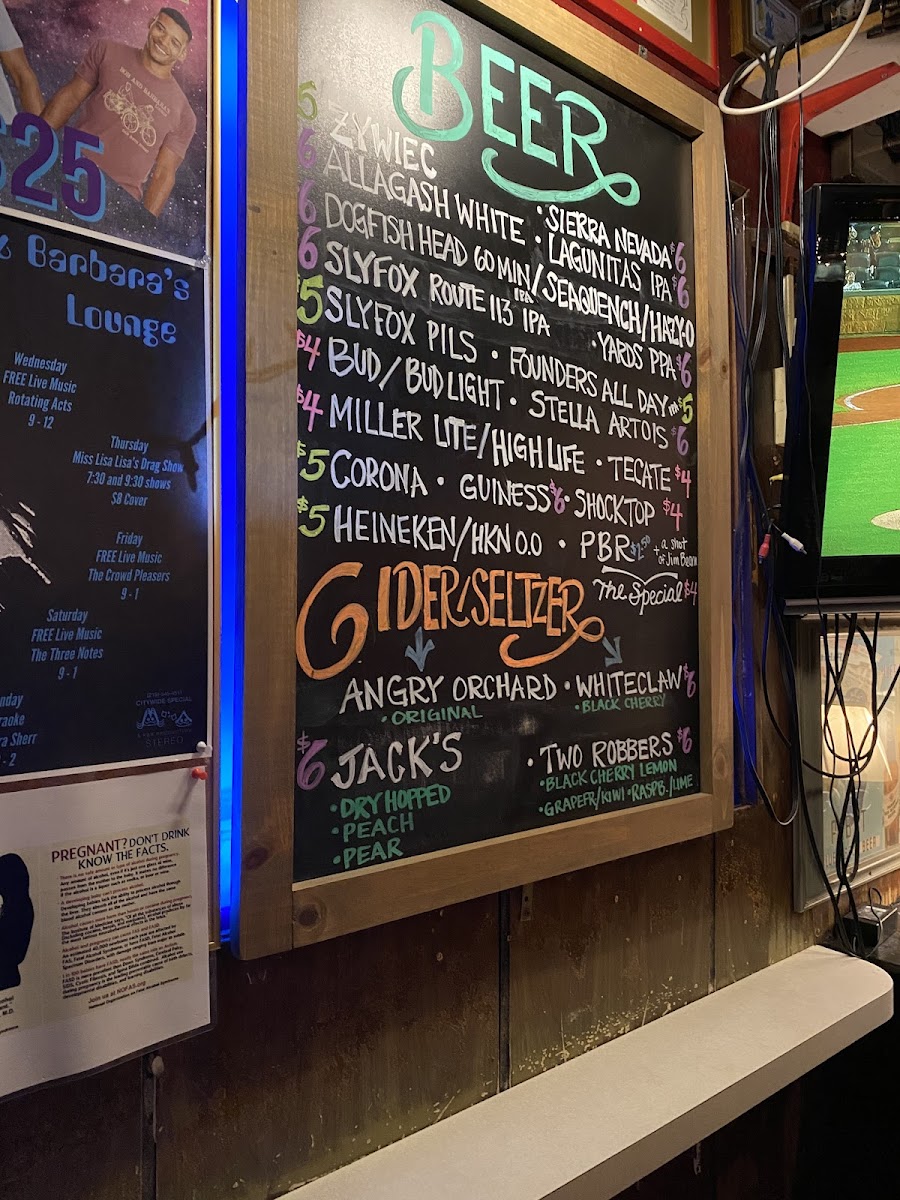 BOB AND BARBARA'S
$25
Barbara's
Lounge
Wednesday
FREE Live Music
Rotating Acts
9 - 12
Thursday
Miss Lisa Lisa's Drag Show
7:30 and 9:30 shows
$8 Cover
Friday
FREE Live Music
The Crowd Pleasers
9 - 1
Saturday
FREE Live Music
The Three Notes
9 - 1
CITYWIDE SPECIAL
STEREO
PREGNANT? DON'T DRINK
KNOW THE FACTS.
Join us at NOFAS.org
BEER
5 ZYWIEC
6 ALLAGASH WHITE • SIERRA NEVADA $6
6 DOGFISH HEAD 60 MIN IPA/SEAQUENCH/HAZY-O
• LAGUNITAS IPA $6
6 SLYFOX ROUTE 113 IPA • YARDS PPA $6
5 SLYFOX PILS • FOUNDERS ALL DAY IPA $5
$4 BUD/BUD LIGHT • STELLA ARTOIS $6
$4 MILLER LITE/HIGH LIFE • TECATE $4
$5 CORONA • GUINESS $6 • SHOCKTOP $4
$5 HEINEKEN/HKN 0.0 • PBR $2.50 + a shot of Jim Beam
The Special $4
CIDER/SELTZER
ANGRY ORCHARD • WHITECLAW $6
• ORIGINAL • BLACK CHERRY
$6 JACK'S
• DRY HOPPED
• PEACH
• PEAR
• TWO ROBBERS $6
• BLACK CHERRY LEMON
• GRAPEFR/KIWI • RASPB./LIME